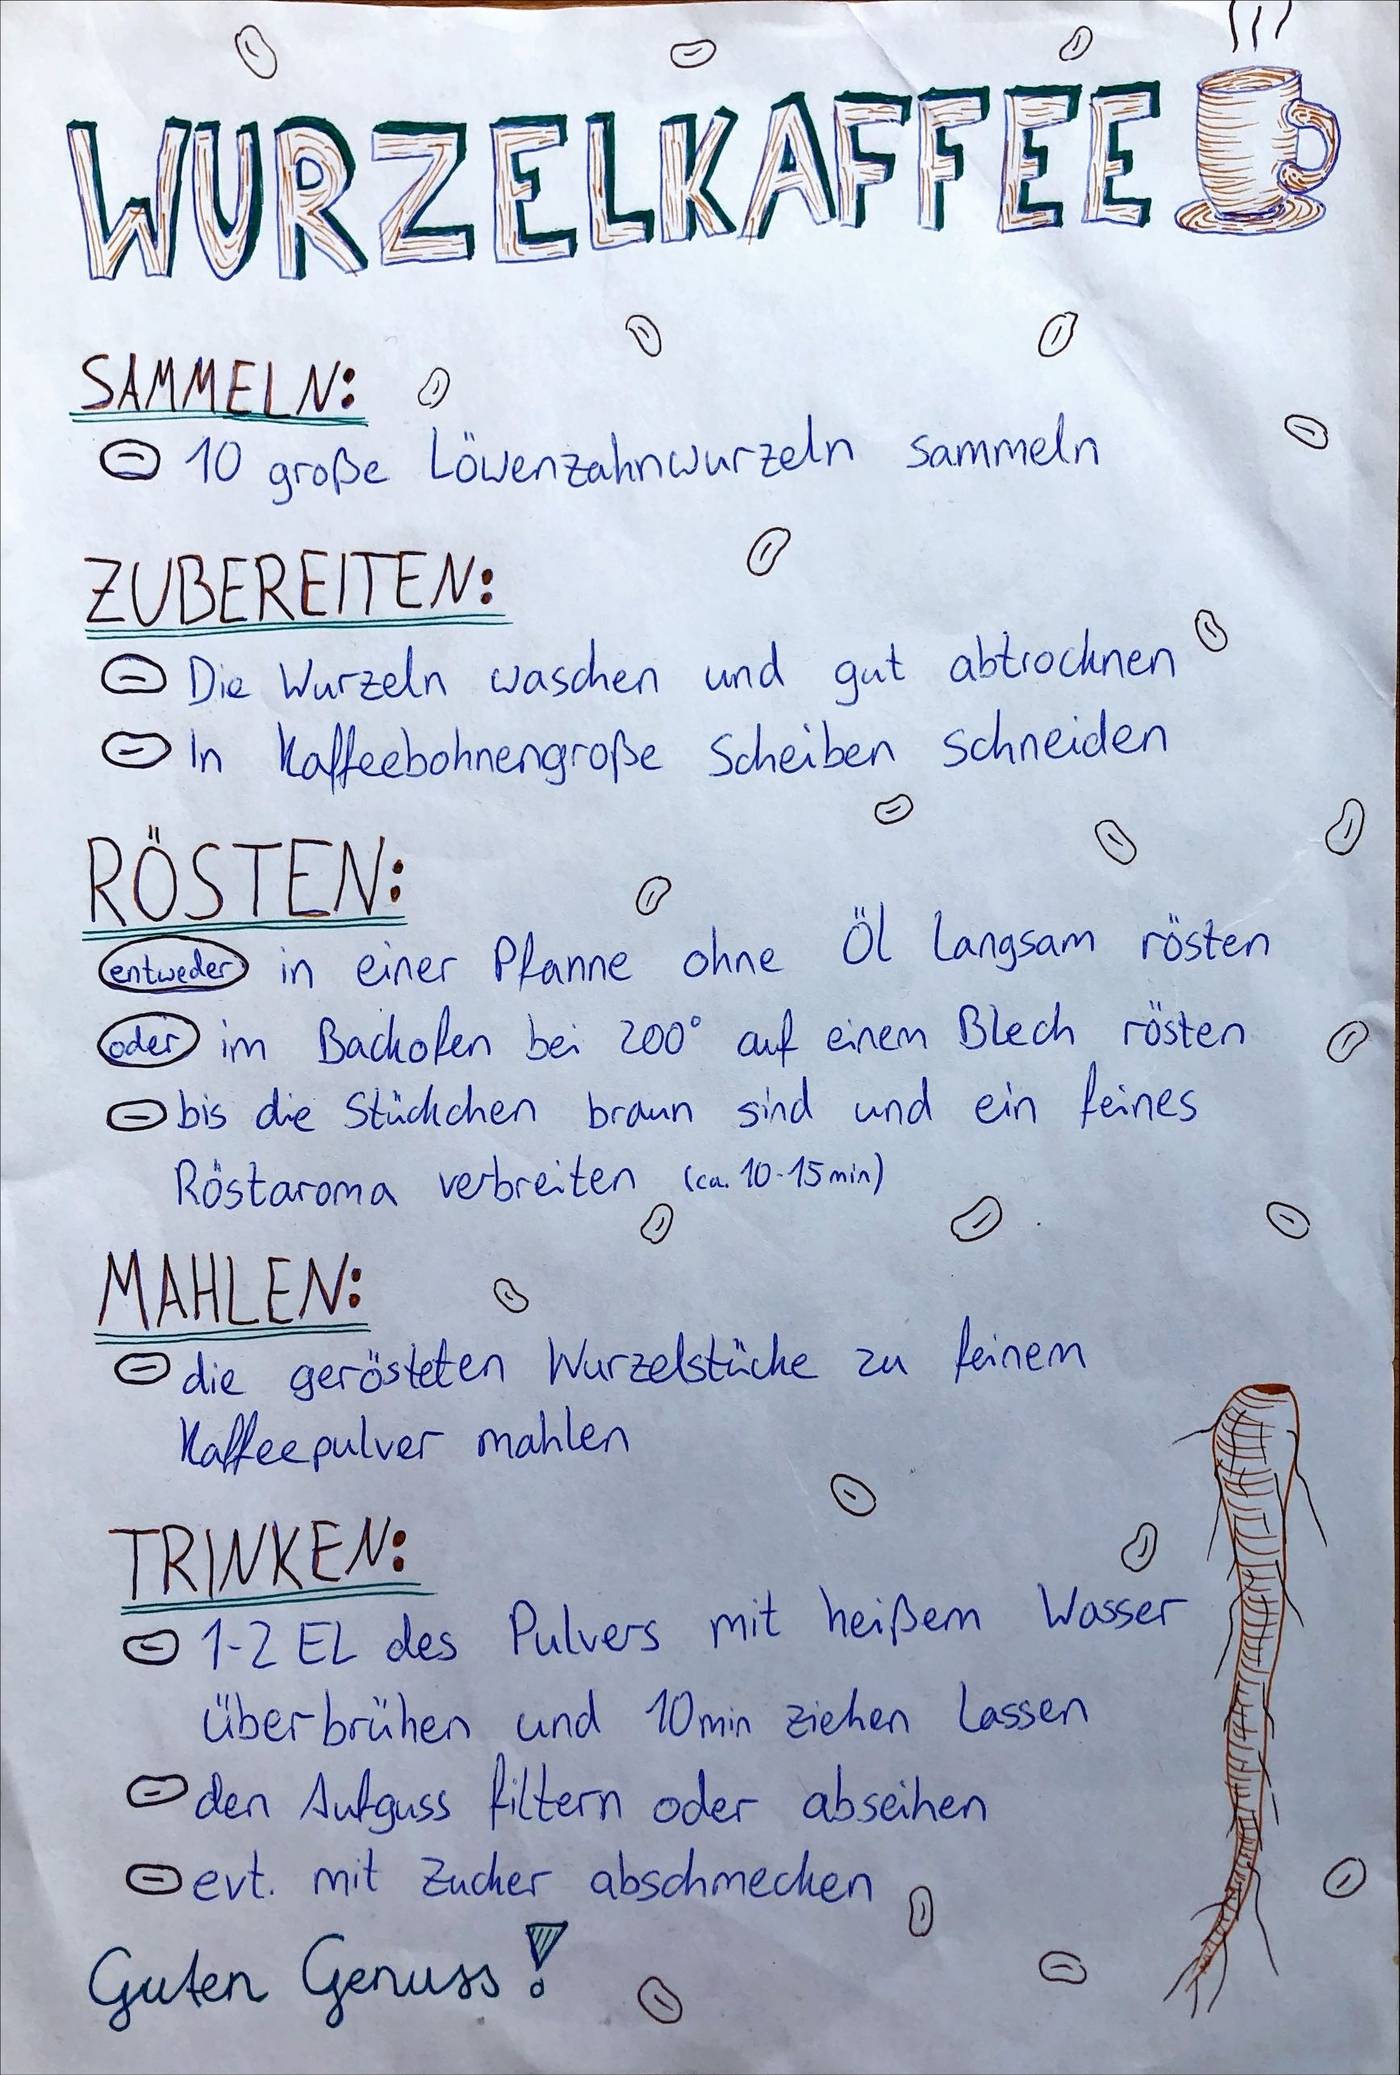 WURZELKAFFEE
SAMMELN:
10 große Löwenzahnwurzeln sammeln
ZUBEREITEN:
Die Wurzeln waschen und gut abtrocknen
In Kaffeebohnengroße Scheiben schneiden
RÖSTEN:
entweder in einer Pfanne ohne Öl langsam rösten
oder im Backofen bei 200° auf einem Blech rösten
bis die Stückchen braun sind und ein feines
Röstaroma verbreiten (ca. 10-15min)
MAHLEN:
die gerösteten Wurzelstücke zu feinem
Kaffeepulver mahlen
TRINKEN:
1-2 EL des Pulvers mit heißem Wasser
überbrühen und 10min ziehen lassen
den Aufguss filtern oder abseihen
evt. mit Zucker abschmecken
Guten Genuss!